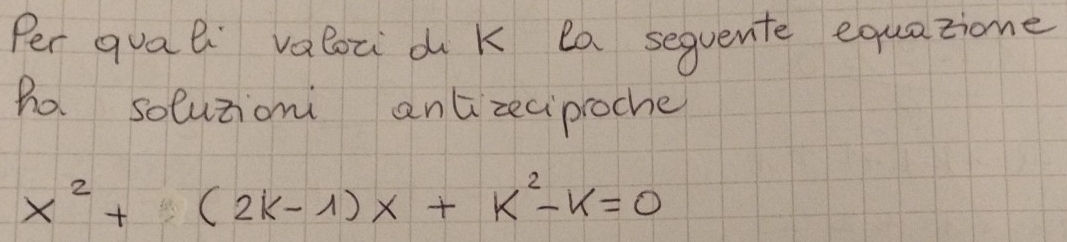 Per quali valori di K la seguente equazione
ha soluzioni antireciproche
x² + (2K-1)x + K²-K=0